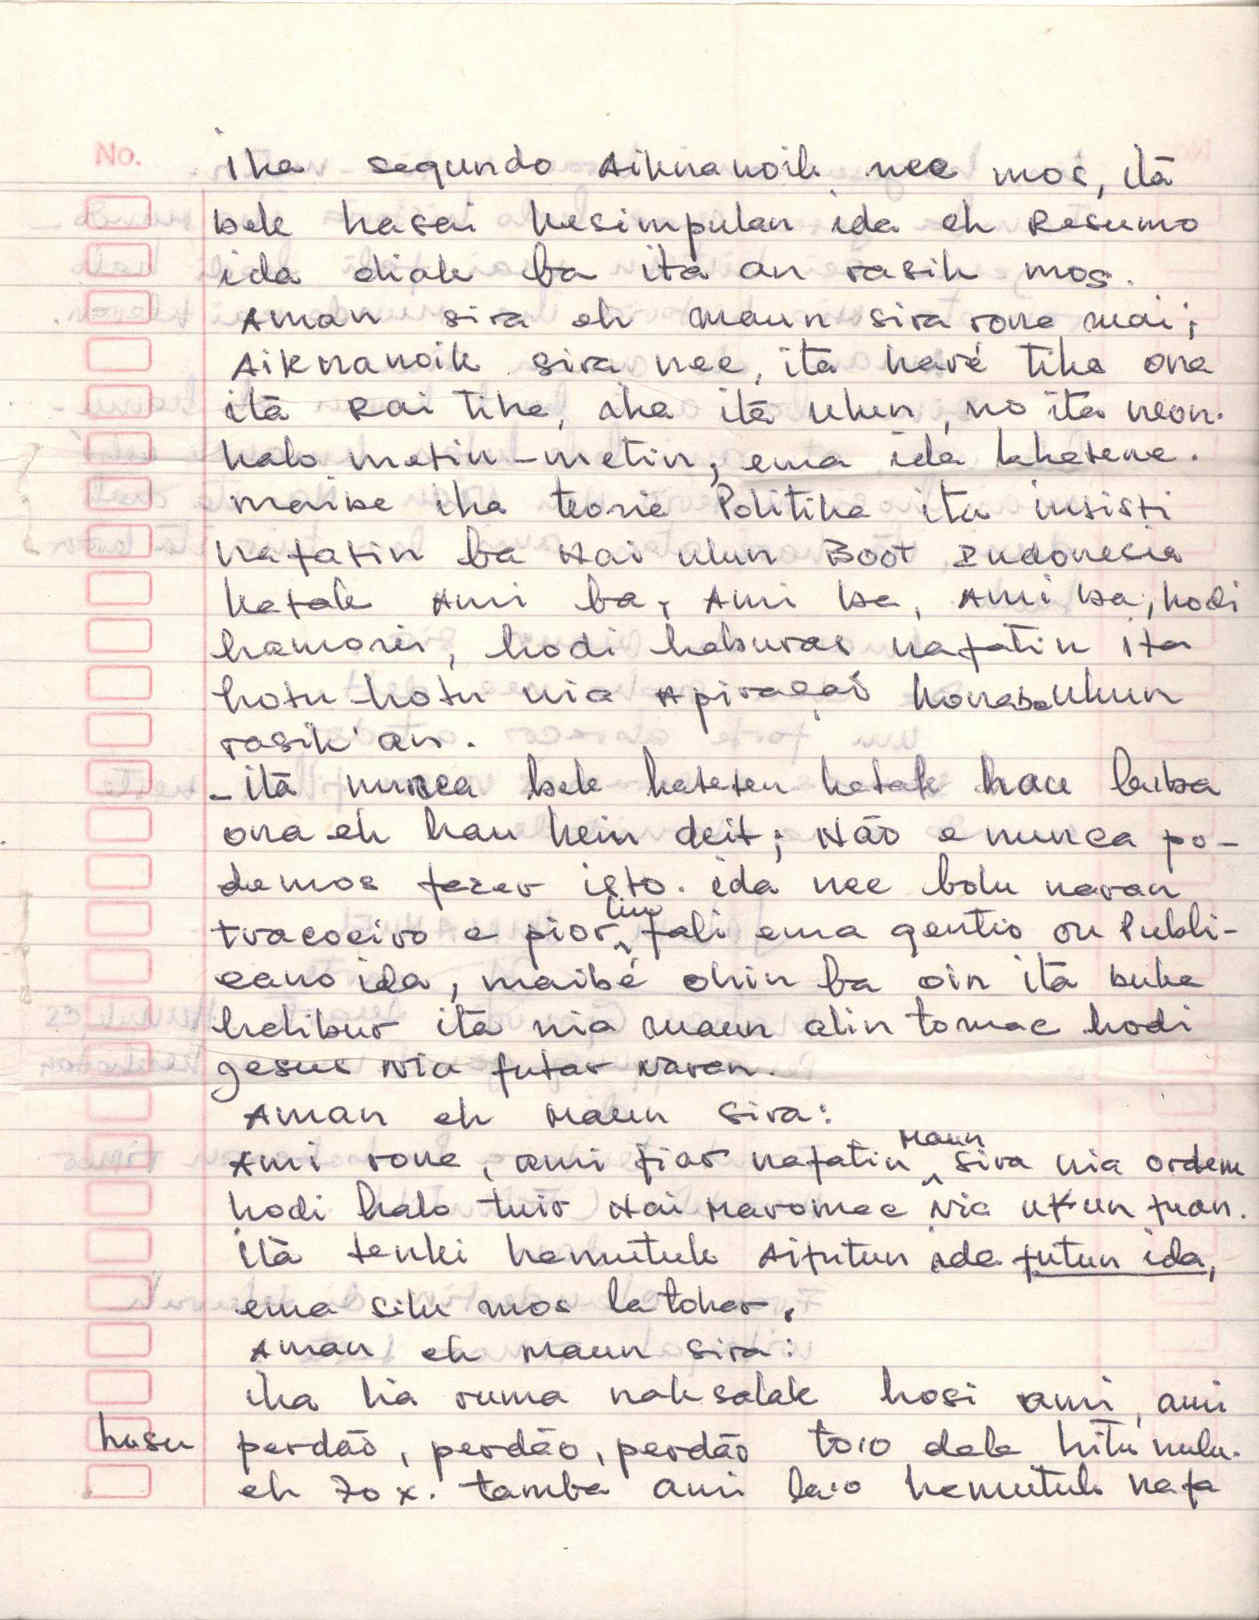 No.
iha segundo Aiknanoik nee mos, itá
bele hasai kesimpulan ida eh Resumo
ida diak ba ita an rasik mos.
Aman sira eh maun sira rona mai;
Aiknanoik sira nee, ita haré tiha ona
itá Rai tiha, iha itá ulun, no ita neon.
halo metin-metin; ema ida lahatene.
maibe iha teoria Politika ita insisti
nafatin ba Nai ulun Boot Indonesia
katak Ami ba, Ami ba, Ami ba, hodi
hamoris, hodi haburas nafatin ita
hotu-hotu nia Apiraçaõ konaba ukun
rasik an.
- itá nunca bele hateten katak hau laiba
ona eh hau hein deit; Não e nunca po-
demos fazer isto. ida nee bolu naran
tracoeiro e pior liu fali ema gentio ou Publi-
cano ida, maibé ohin ba oin itá buka
halibur ita nia maun alin tomac hodi
Jesus Nia futar Naran.
Aman eh Maun sira:
Ami rona, ami fiar nafatin Maun sira nia ordem
hodi halo tuir Nai Maromac Nia ukun fuan.
itá tenki hamutuk Aifutun ida futun ida,
ema silu mos la tohar.
Aman eh Maun sira:
iha lia ruma nak salak hosi ami, ami
husu perdão, perdão, perdão to'o dala hitu nulu.
eh 70 x. tamba ami la'o hamutuk nafa